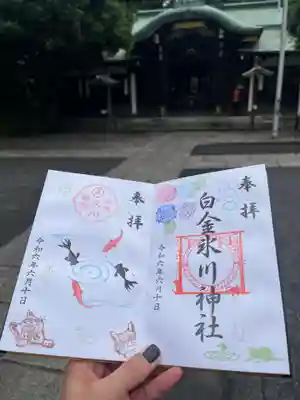 奉拝
白金氷川神社
令和六年六月十日
奉拝
令和六年六月十日